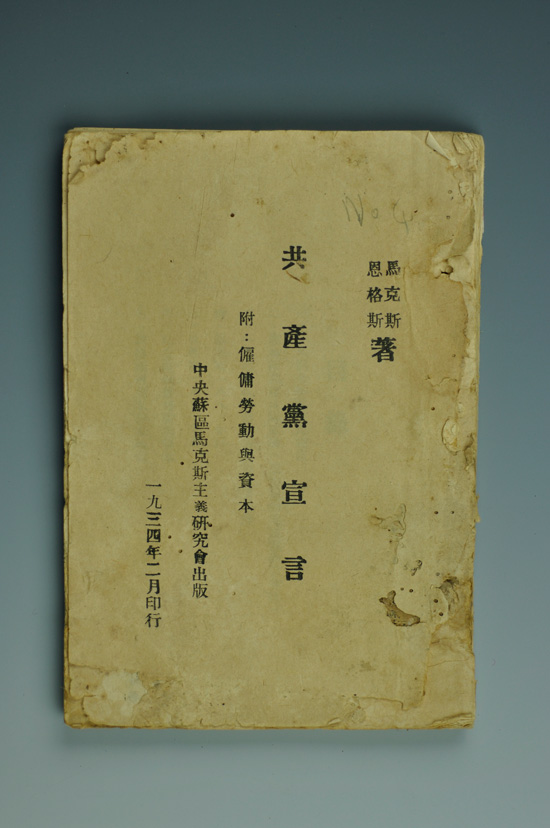 No 4
馬克斯
恩格斯
著
共產黨宣言
附：僱傭勞動與資本
中央蘇區馬克斯主義研究會出版
一九三四年二月印行